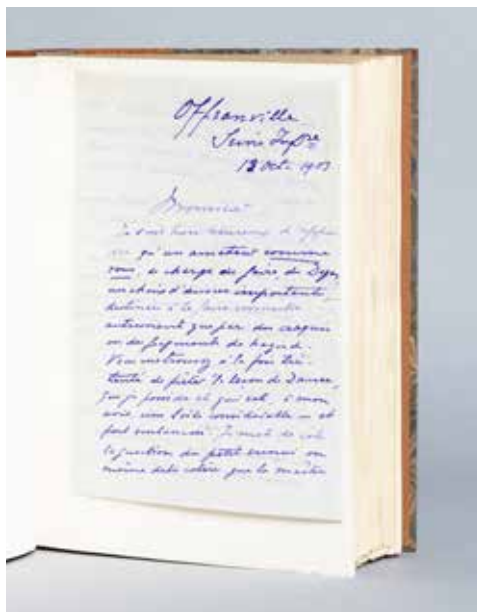 Offranville
Seine Infre
13 Oct. 1903
Monsieur
Je suis bien heureux d'appren
dre qu'un amateur comme
vous, se charge de faire, de Degas,
un choix d'œuvres importantes
destinées à le faire connaître
autrement que par des croquis
ou des fragments de hasard.
Vous me trouvez à la fois très
tenté de prêter la leçon de Danse,
que je possède et qui est, à mon
avis, une toile considérable et
fort
Je mets de côté
la question du petit ennui ou
même de la colère que le maître